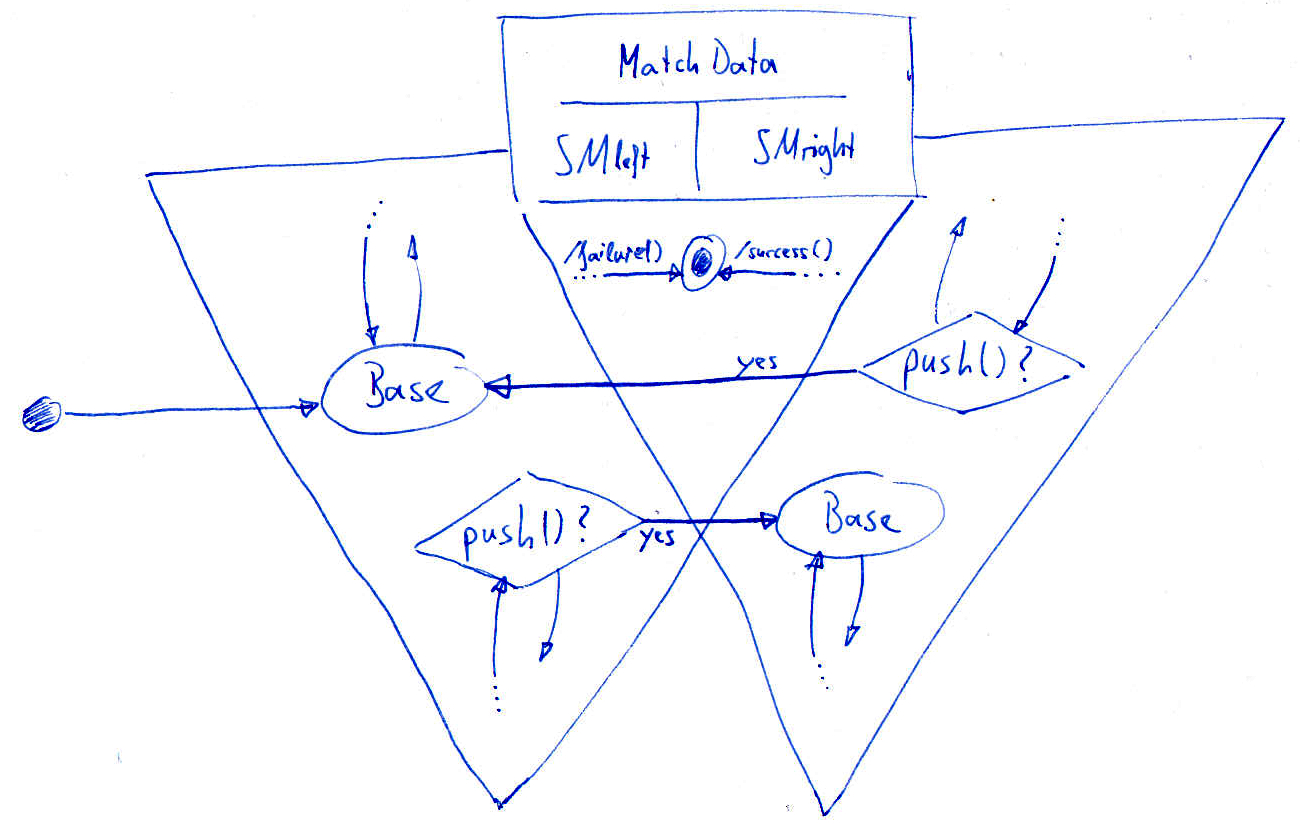 Match Data
SMleft SMright
/failure() /success()
yes push()?
Base
push()? yes Base